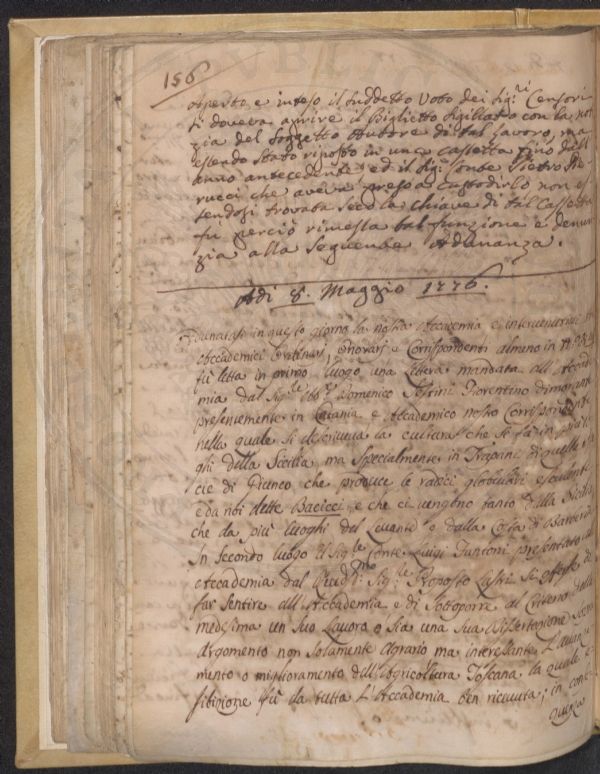 156
Aperto, e inteso il suddetto Voto dei Sig:ri Censori
si doveva aprire il Biglietto sigillato con la noti
zia del Soggetto Autore di tal lavoro, ma
essendo stato riposto in una cassetta fino dall'
anno antecedente, ed il Sig: Conte Pietro
rucci che aveva preso a custodirlo non es
sendosi trovata seco la chiave di tal Cassetta
fu perciò rimessa tal funzione e denun
zia alla seguente Adunanza.
Adi 8. Maggio 1776.
Adunatasi in questo giorno la nostra Accademia e intervenutivi
Accademici Ordinarj, Onorarj e Corrispondenti almeno in N. 25
fù letta in primo luogo una Lettera mandata all'Accade
mia dal Sig:re Ab: Domenico Sestini Fiorentino dimorante
presentemente in Catania e Accademico nostro Corrispondente
nella quale si descriveva la cultura che si fà in più luo
ghi della Sicilia, ma specialmente in Trapani di quella spe
cie di Giunco che produce le radici globulari esculenti
e da noi dette Bacicci, e che ci vengono tanto dalla Sicilia
che da più luoghi del Levante o dalla Costa di Barberia
In secondo luogo il Sig:re Conte Luigi Fantoni presentato all'
Accademia dal Sig:re Proposto Lastri si offerse di
far sentire all'Accademia e di sottoporre al Criterio della
medesima un suo Lavoro o sia una sua Dissertazione
Argomento non solamente Agrario ma interessante L'avanza
mento o miglioramento dell'Agricoltura Toscana la quale e
sibizione fù da tutta L'Accademia ben ricevuta; in conse
guenza